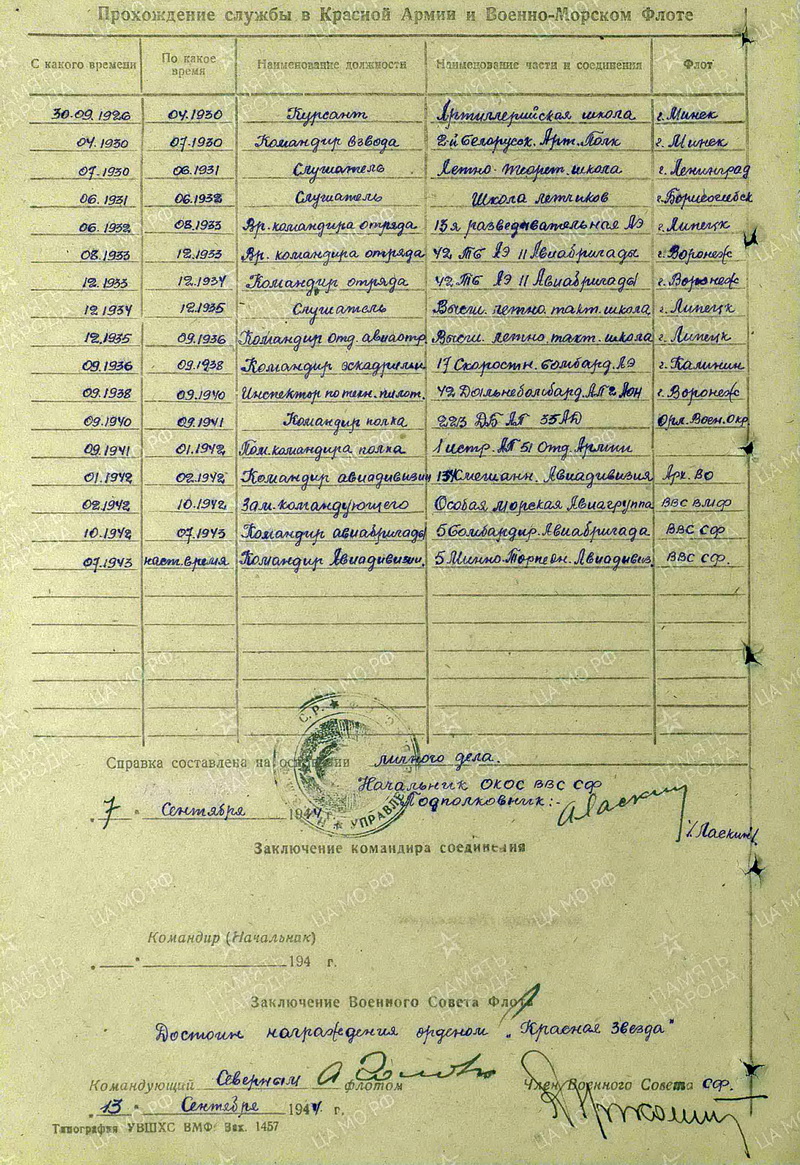 Прохождение службы в Красной Армии и Военно-Морском Флоте
С какого времени По какое время Наименование должности Наименование части и соединения Флот
30.09.1926 04.1930 Курсант Артиллерийская школа г. Минск
04.1930 07.1930 Командир взвода 2-й Белорусск. Арт. Полк г. Минск
07.1930 06.1931 Слушатель Летно-теорет. школа г. Ленинград
06.1931 06.1932 Слушатель Школа летчиков г. Борисоглебск
06.1932 08.1933 Вр. командира отряда 13я разведывательная АЭ г. Липецк
08.1933 12.1933 Вр. командира отряда 42 ТБ АЭ 11 Авиабригады г. Воронеж
12.1933 12.1934 Командир отряда 42 ТБ АЭ 11 Авиабригады г. Воронеж
12.1934 12.1935 Слушатель Высш. летно. такт. школа г. Липецк
12.1935 09.1936 Командир отд. авиаотр. Высш. летно. такт. школа г. Липецк
09.1936 09.1938 Командир эскадрильи 17 Скоростн. бомбард. АЭ г. Калинин
09.1938 09.1940 Инспектор по техн. пилот. 42 Дальнебомбард. АП 2 Аон г. Воронеж
09.1940 09.1941 Командир полка 223 ДБ АП 35 АД Орл. Воен. Окр.
09.1941 01.1942 Пом. командира полка 1 истр. АП 51 Отд. Армии
01.1942 02.1942 Командир авиадивизии 134 Смешанн. Авиадивизия Арх. ВО
02.1942 10.1942 Зам. командующего Особая морская Авиагруппа ВВС ВМФ
10.1942 07.1943 Командир авиабригады 5 Бомбардир. Авиабригада ВВС СФ
07.1943 наст. время Командир Авиадивизии. 5 Минно-Торпедн. Авиадивиз. ВВС СФ.
Справка составлена на основании личного дела.
Начальник ОКОС ВВС СФ
Подполковник:-
АЛаскин
"7" Сентября 1944 г.
/Ласкин/
УПРАВЛЕ
Заключение командира соединения
Командир (Начальник)
" " 194 г.
Заключение Военного Совета Флота
Достоин награждения орденом „Красная Звезда"
Командующий Северным флотом Член Военного Совета СФ.
"13" Сентября 1944 г.
Типография УВШХС ВМФ Зак. 1457
ПАМЯТЬ НАРОДА
ЦА МО.РФ